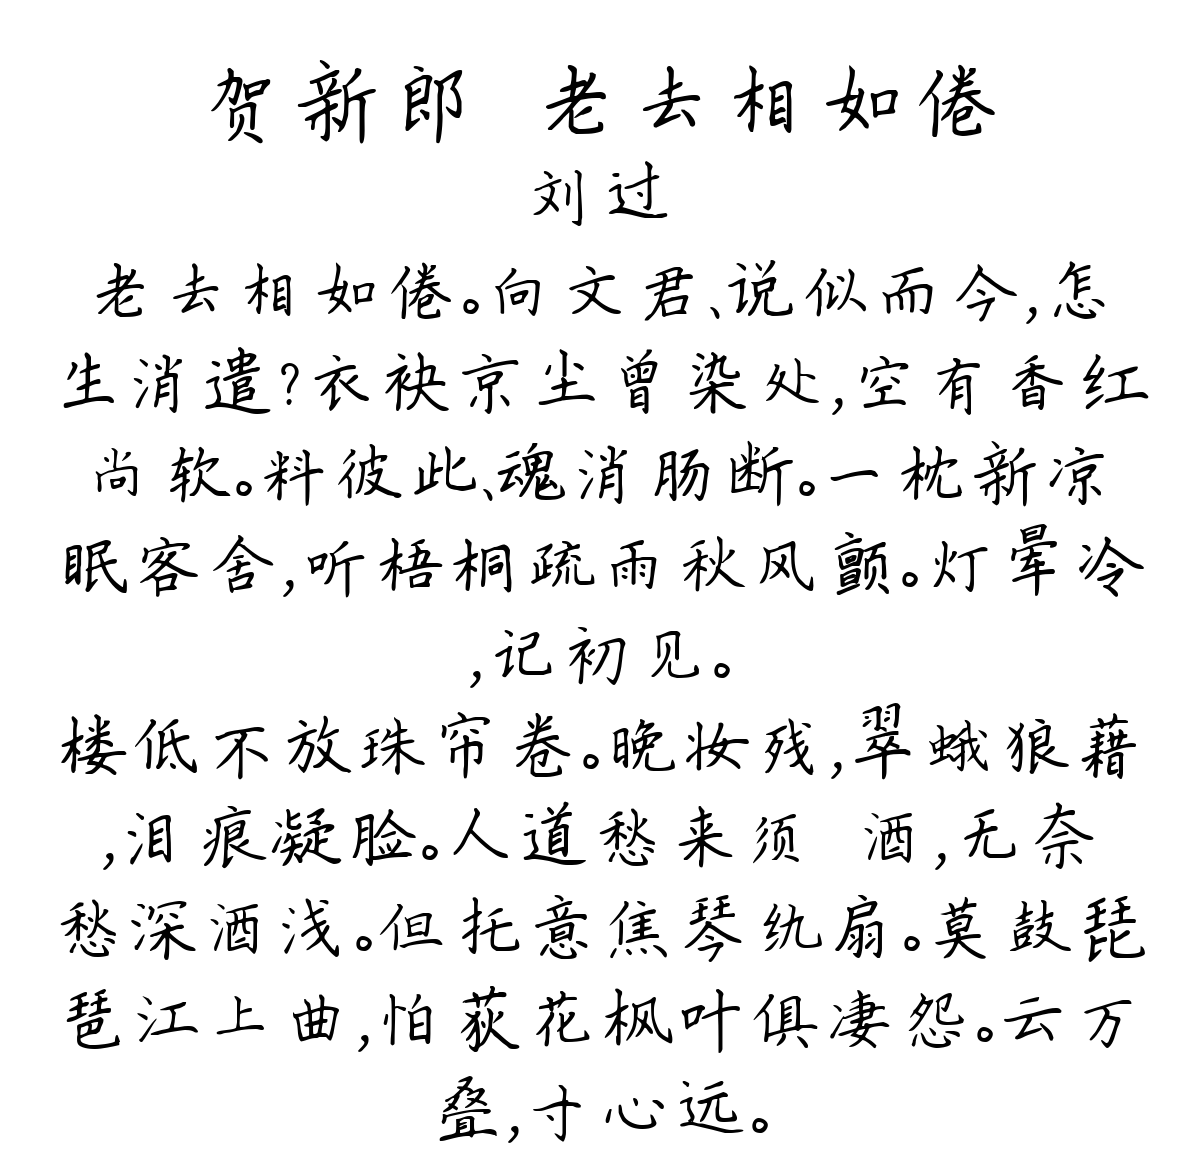 贺新郎 老去相如倦
刘过
老去相如倦。向文君、说似而今,怎
生消遣?衣袂京尘曾染处,空有香红
尚软。料彼此、魂消肠断。一枕新凉
眠客舍,听梧桐疏雨秋风颤。灯晕冷
,记初见。
楼低不放珠帘卷。晚妆残,翠蛾狼藉
,泪痕凝脸。人道愁来须 酒,无奈
愁深酒浅。但托意焦琴纨扇。莫鼓琵
琶江上曲,怕荻花枫叶俱凄怨。云万
叠,寸心远。